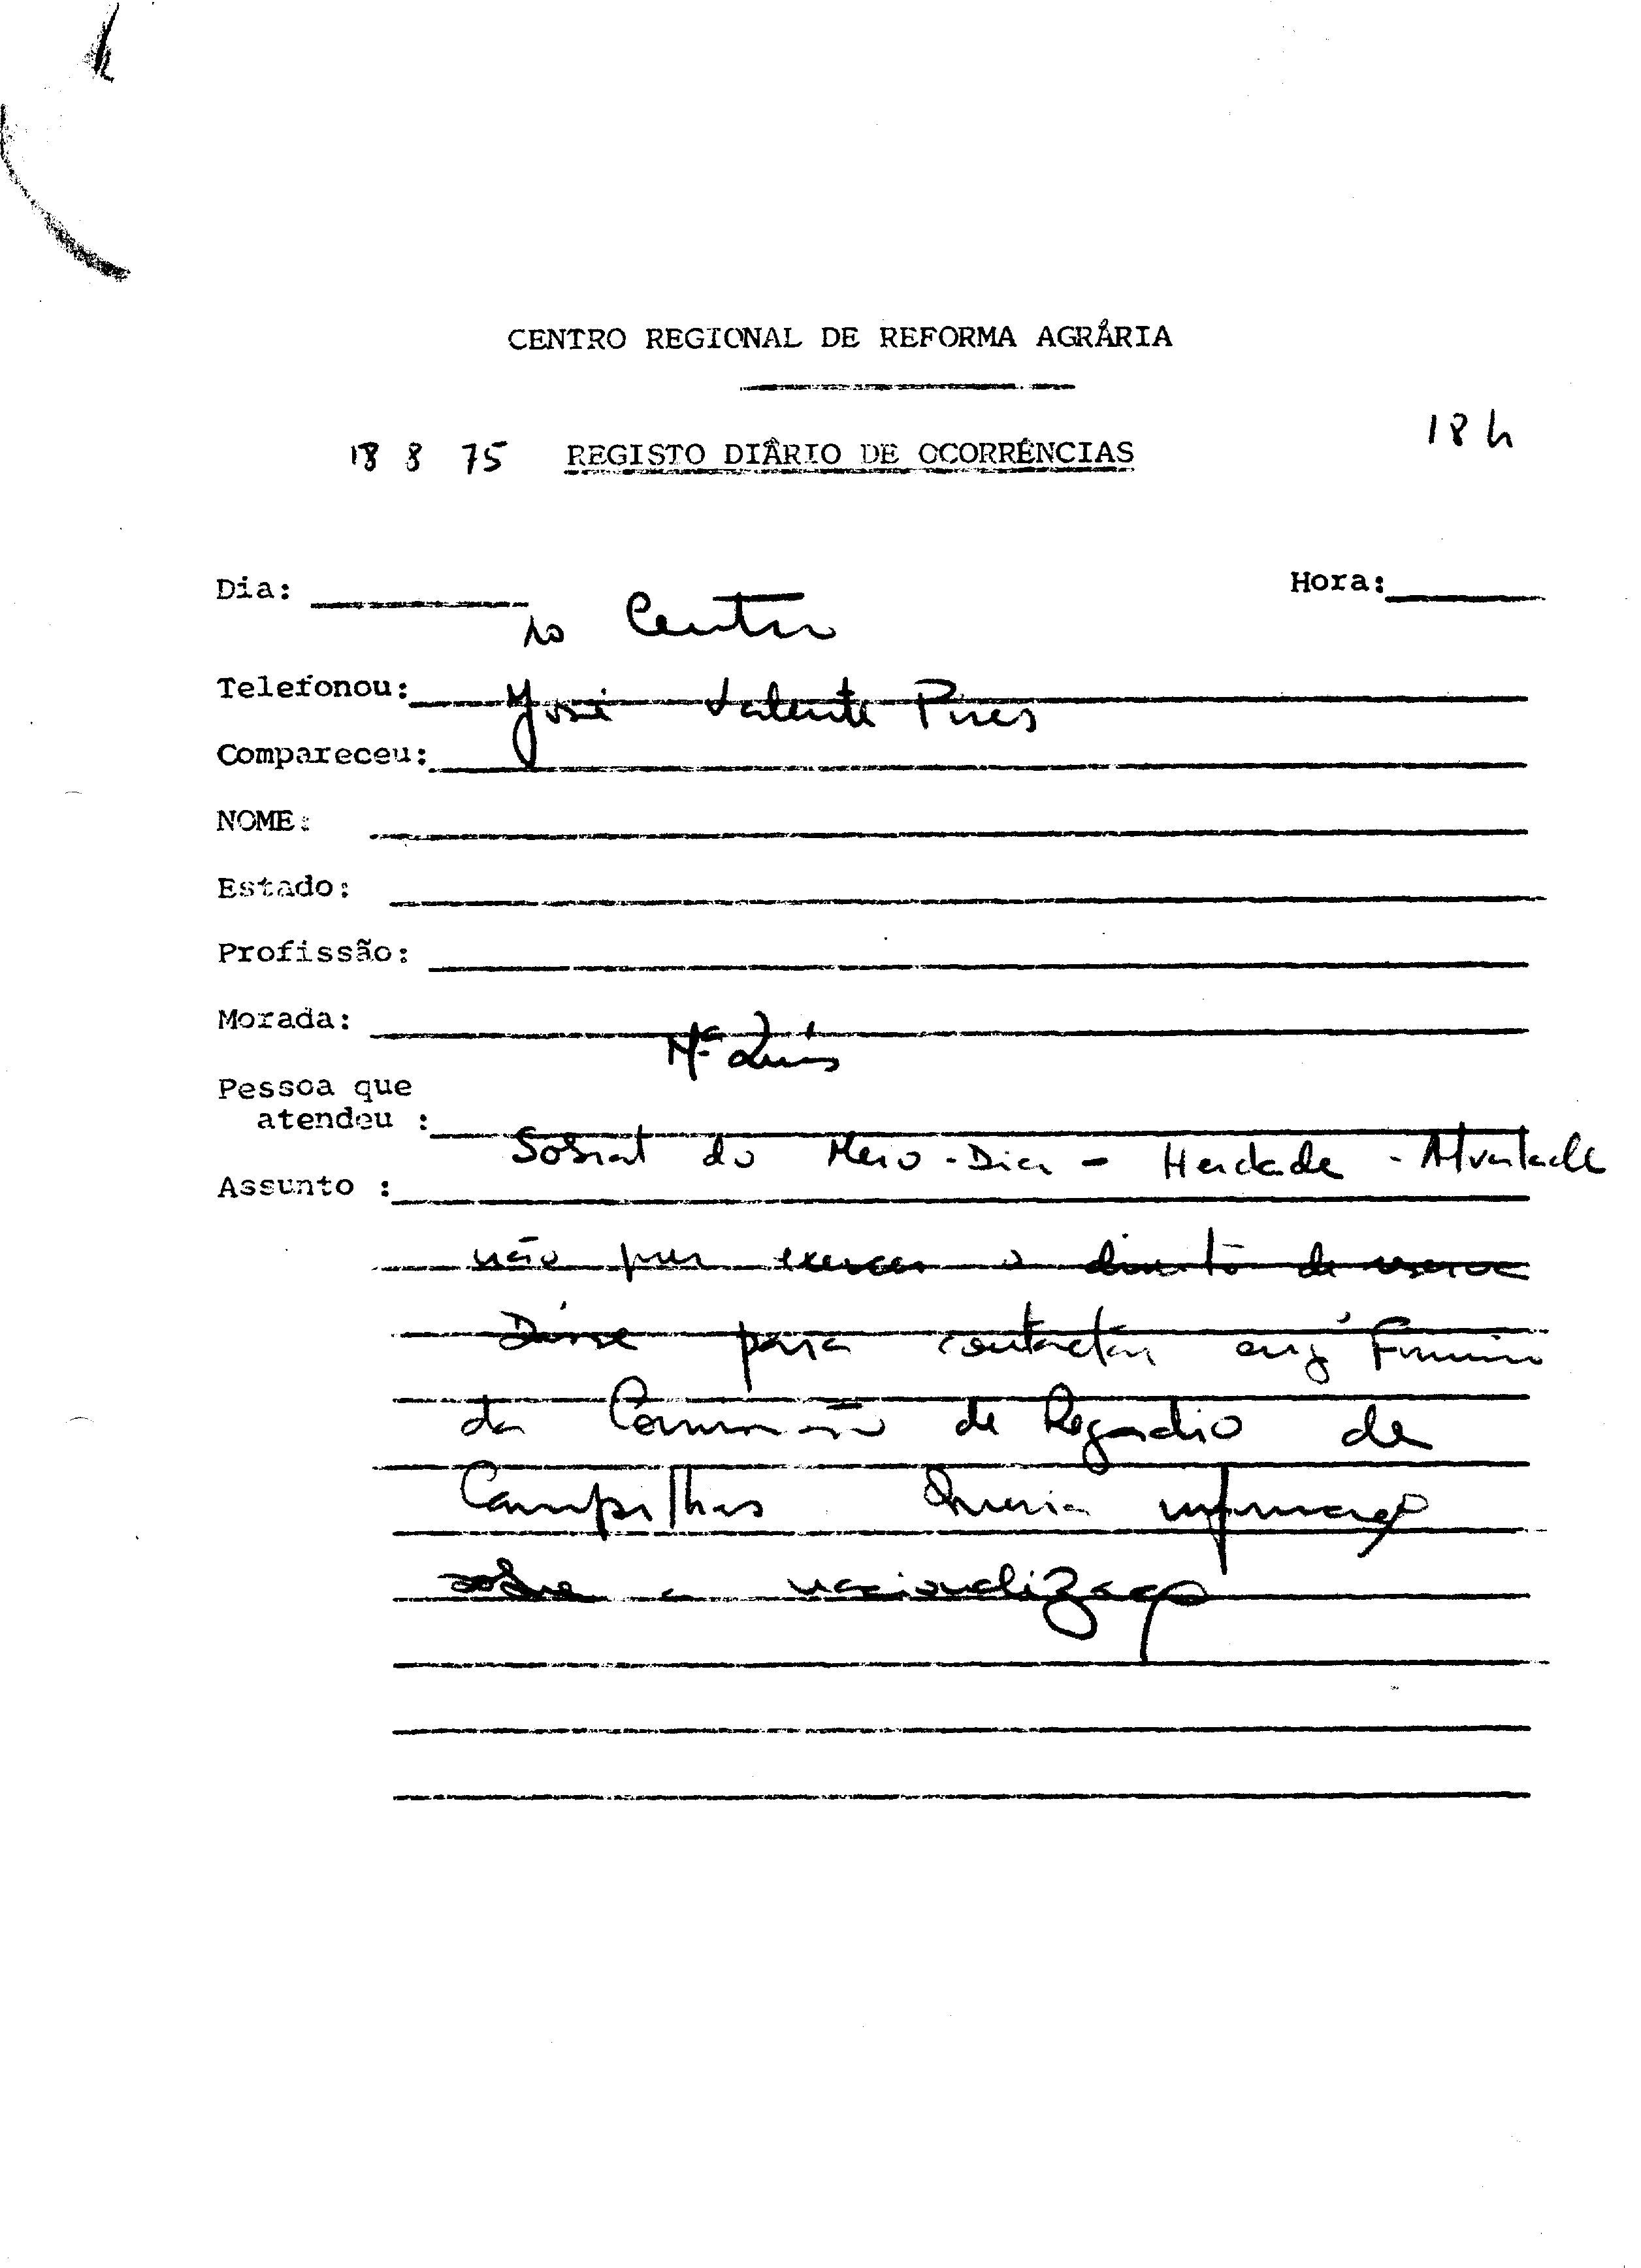 CENTRO REGIONAL DE REFORMA AGRÁRIA
18 8 75 REGISTO DIÁRIO DE OCORRÊNCIAS 18 h
Dia: Hora:
no Centro
Telefonou:
José Valente Pires
Compareceu:
NOME:
Estado:
Profissão:
Morada:
Mª Luís
Pessoa que
atendeu :
Sobral do Meio-Dia - Herdade - Alvalade
Assunto :
não exercer o direito de reserva
Disse para contactar engº Firmino
da Comissão de Regadio de
Campilhas Queria informação
sobre a nacionalização